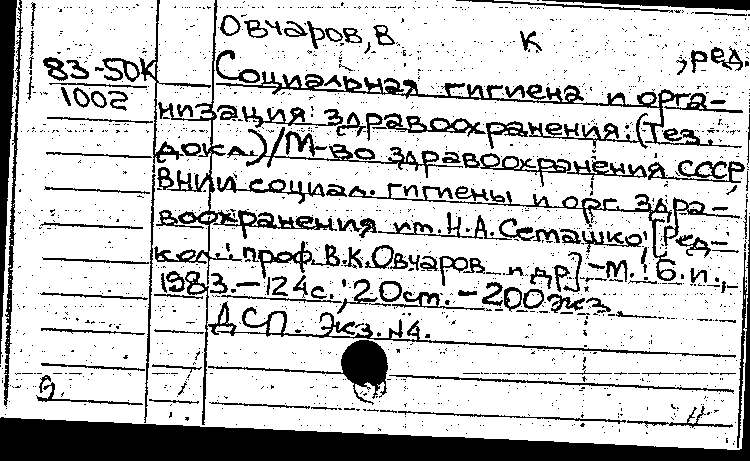 Овчаров, В К , ред.
83-50К
1002
Социальная гигиена и орга-
низация здравоохранения: (Тез.
докл.)/М-во здравоохранения СССР,
ВНИИ социал. гигиены и орг. здра-
воохранения им. Н.А.Семашко; [Ред-
кол.: проф. В.К.Овчаров и др.]. -М.: Б.и.,
1983.-124с.; 20см. -200экз.
ДСП. Экз.N4.